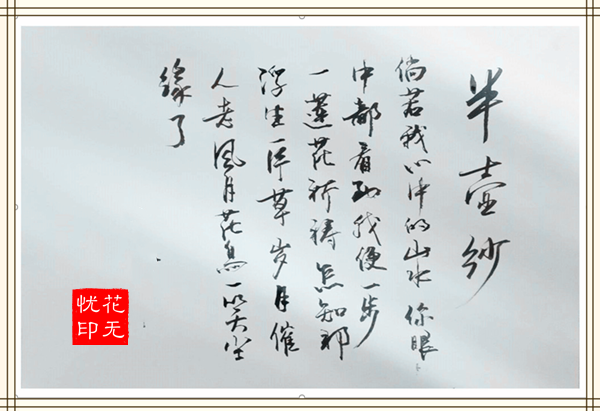 半壶纱
倘若我心中的山水 你眼
中都看到我便一步
一莲花祈祷怎知那
浮生一片草岁月催
人老风月花鸟一笑尘
缘了
花无
忧印